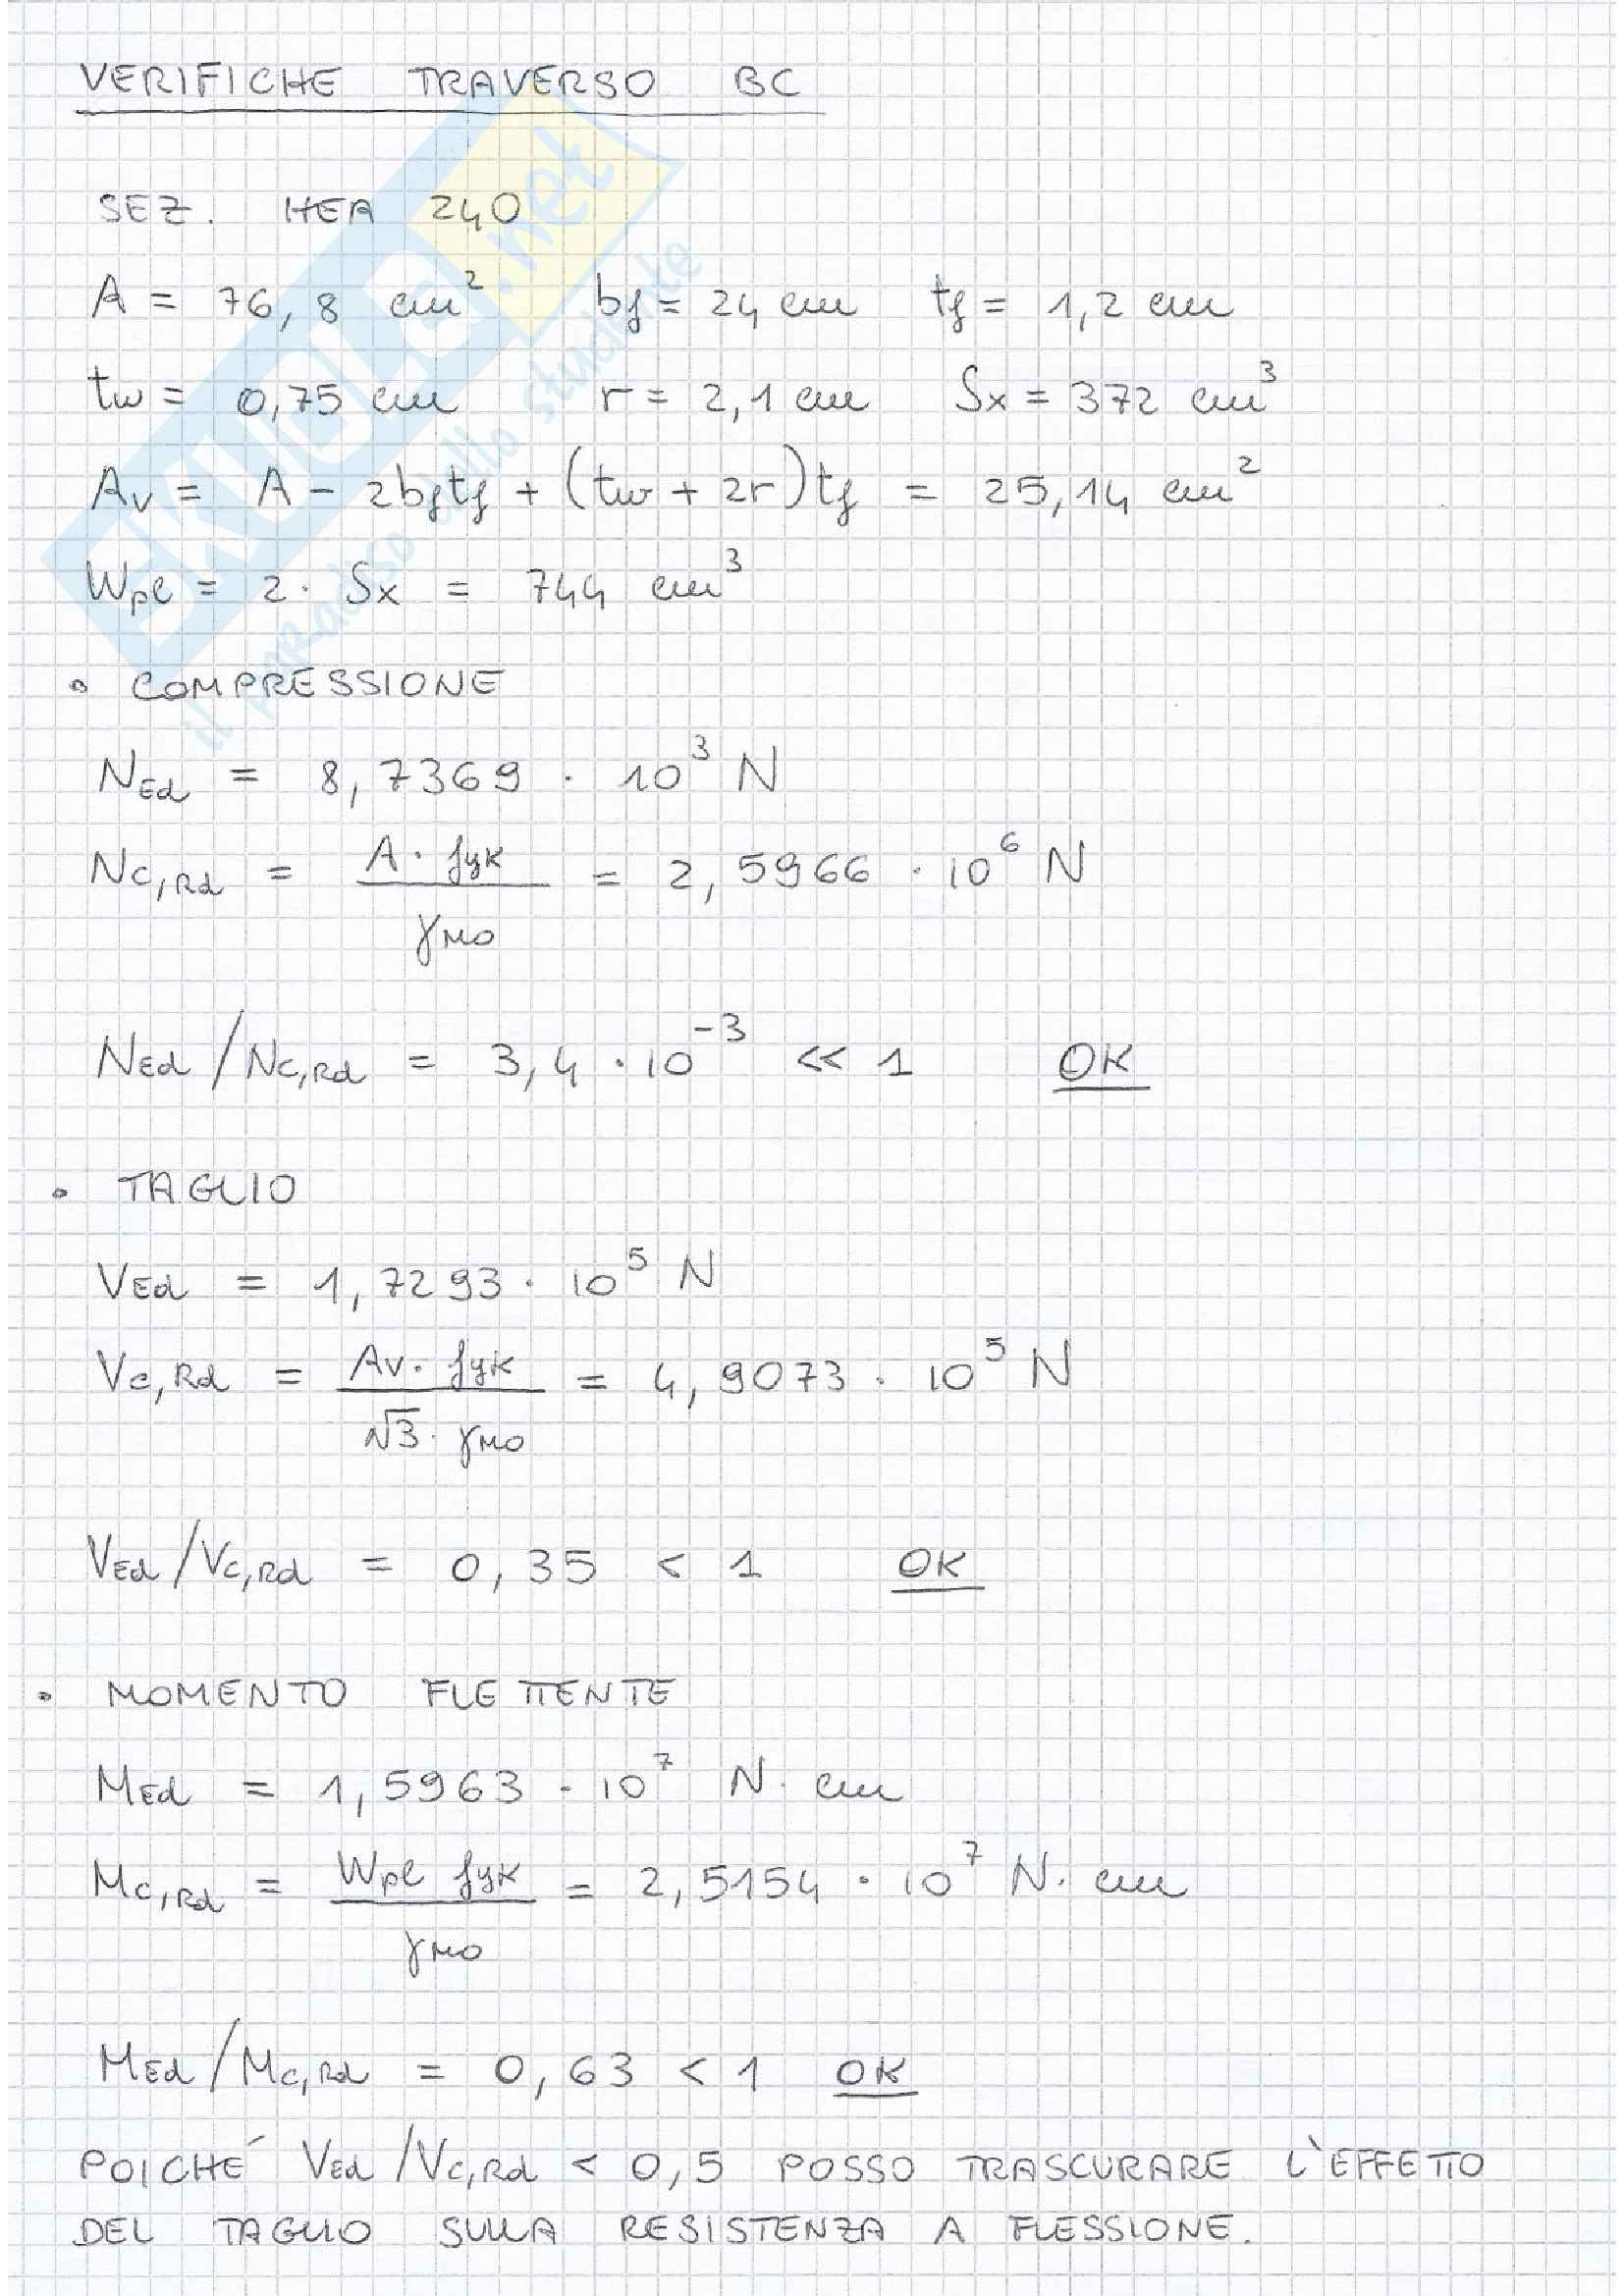 VERIFICHE TRAVERSO BC
SEZ. HEA 240
A = 76,8 cm² bf = 24 cm tf = 1,2 cm
tw = 0,75 cm r = 2,1 cm Sx = 372 cm³
Av = A - 2bftf + (tw + 2r)tf = 25,14 cm²
Wpl = 2 · Sx = 744 cm³
• COMPRESSIONE
NEd = 8,7369 · 10³ N
Nc,Rd = A · fyk / γM0 = 2,5966 · 10⁶ N
NEd/Nc,Rd = 3,4 · 10⁻³ << 1 OK
• TAGLIO
VEd = 1,7293 · 10⁵ N
Vc,Rd = Av · fyk / √3 · γM0 = 4,9073 · 10⁵ N
VEd/Vc,Rd = 0,35 < 1 OK
• MOMENTO FLETTENTE
MEd = 1,5963 · 10⁷ N · cm
Mc,Rd = Wpl fyk / γM0 = 2,5154 · 10⁷ N · cm
MEd/Mc,Rd = 0,63 < 1 OK
POICHÉ VEd/Vc,Rd < 0,5 POSSO TRASCURARE L'EFFETTO
DEL TAGLIO SULLA RESISTENZA A FLESSIONE.
SKUOLA.net
il paradiso dello studente